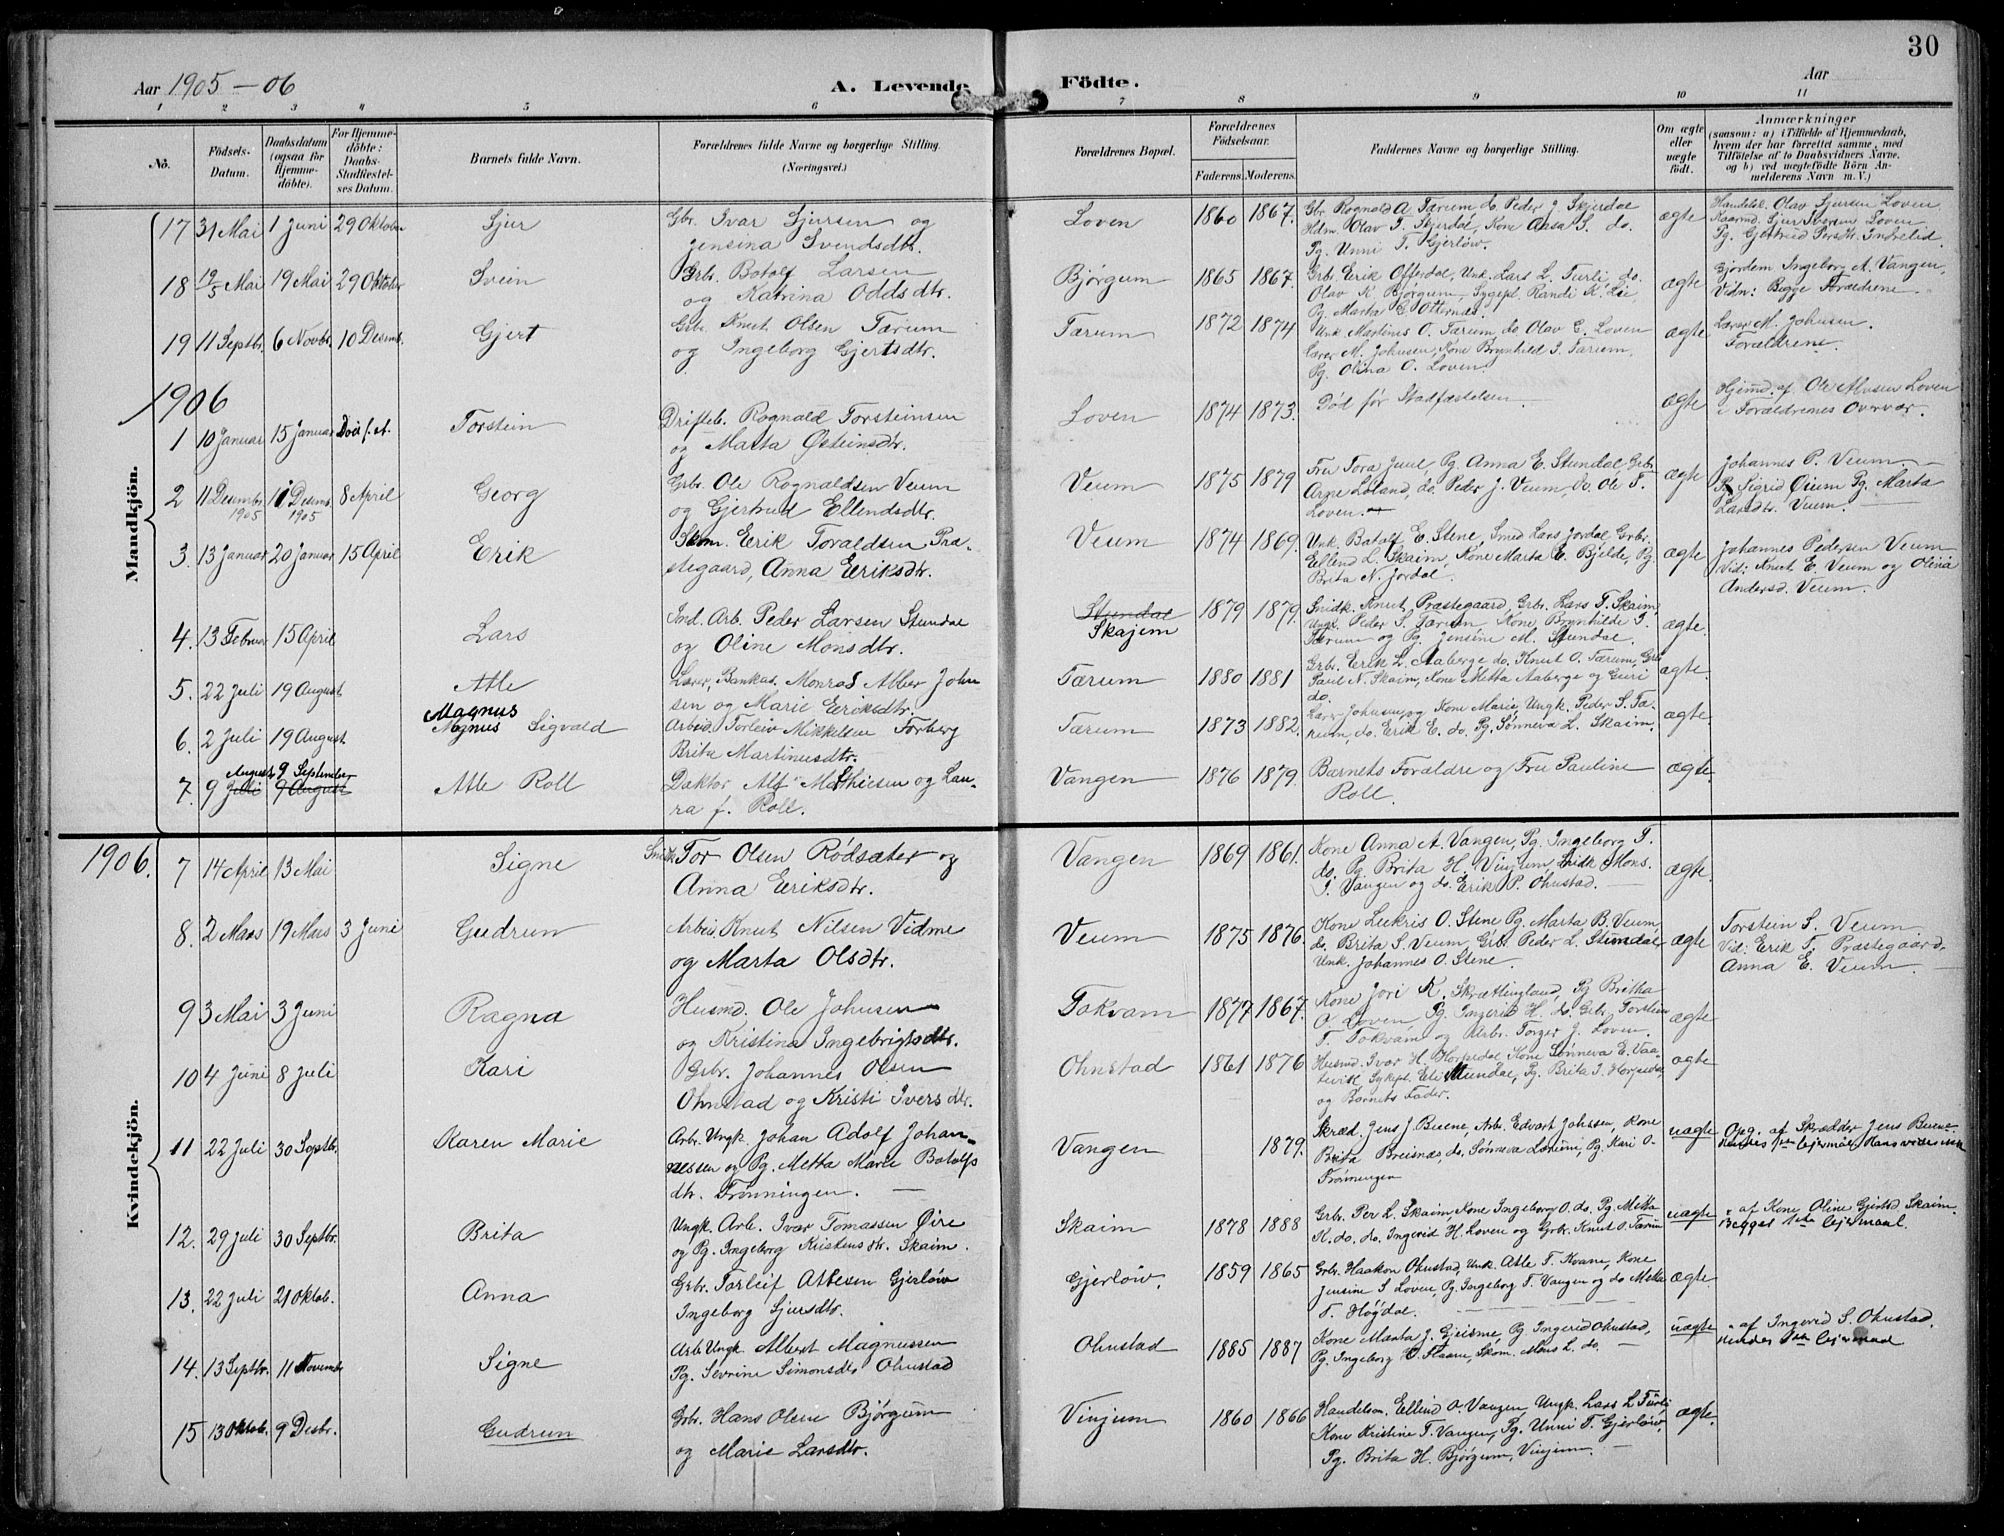 30
Aar 1905-06
A. Levende Födte.
Aar
1 2 3 4 5 6 7 8 9 10 11
No. Födsels-Datum. Daabsdatum (ogsaa for Hjemmedöbte). For Hjemmedöbte: Daabs-Stadfæstelses Datum. Barnets fulde Navn. Forældrenes fulde Navne og borgerlige Stilling. (Næringsvei.) Forældrenes Bopæl. Forældrenes Födselsaar. Faderens. Moderens. Faddernes Navne og borgerlige Stilling. Om ægte eller uægte födt. Anmærkninger (saasom: a) i Tilfælde af Hjemmedaab, hvem der har forrettet samme, med Tilföielse af to Daabsvidners Navne, og b) ved uægtefödte Börn Anmelderens Navn m. V.)
Mandkjön.
17 31 Mai 1 Juni 29 Oktober Sjur Gbr. Ivar Sjursen og Loven 1860 1867. Gbr. Rognald A. Tærum do Peder J. Skjerdal ægte Handelsk. Olav Sjursen Loven.
Jensina Svendsdtr. Hdm. Olav J. Skjerdal, Kone Aasa S. do. Sjur Iversen Loven
Pg. Unni T. Gjerløw. Pg. Gjertrud Persdtr. Indrelid.
18 12/5 Mai 19 Mai 29 Oktober Svein Gbr. Botolf Larsen Bjørgum 1865 1867. Gbr. Erik Offerdal, Unk. Lars L. Turli, do. ægte Gjordem. Ingeborg A. Vangen,
og Katrina Oddsdtr. Olav K. Bjørgum, Sygepl. Randi K. Lie, Vidn: Begge Forældrene
Pg. Marta E. Otternes.
19 11 Septbr. 6 Novbr. 10 Desemb. Gjert Gbr. Knut Olsen Tærum Tærum 1872 1874 Unk Martines O. Tærum, do Olav E. Loven ægte Lærer M. Johnsen.
og Ingeborg Gjertsdtr. Lærer M. Johnsen, Kone Brynhild I. Tærum. Forældrene.
Pg. Olina O. Loven
1906
1 10 Januar 15 Januar Død f. St. Torstein Drifteb. Rognald Torsteinsen Loven 1874 1873. Død før Stadfæstelsen ægte Hjemd. af Ole Monsen Loven
og Marta Østeinsdtr. i Forældrenes Overvær.
2 11 Desember 1905 11 Desemb. 1905 8 April Georg Gbr. Ole Rognaldsen Veum Veum 1875 1879 Fru Tora Juul, Pg. Anna E. Stundal, Gbr. ægte Johannes P. Veum.
og Gjertrud Ellendsdtr. Arne Loland, do. Peder J. Veum, do. Ole T. Pg. Sigrid Øium Pg. Marta
Loven. Larsdtr. Veum.
3. 13 Januar 20 Januar 15 April Erik Skom. Erik Toraldsen Præ- Veum 1874 1869. Unk. Batolf E. Stene, Smed Lars Jordal Gbr. ægte Johannes Pedersen Veum
stegaard, Anna Eriksdtr. Ellend L. Skaim, Kone Marta E. Bjelde, Pg. Vid: Knut E. Veum og Olina
Brita N. Jordal. Andersd. Veum.
4. 13 Februar 15 April Lars Ind. Arb. Peder Larsen Stundal Stundal Skajem 1879 1879. Snidk. Knut Præstegaard, Gbr. Lars T. Skaim, ægte.
og Oline Monsdtr. Ungk. Peder S. Tærum Kone Brynhilde I.
Tærum og Pg. Jensine M. Stundal.
5. 22 Juli 19 August Atle Lærer, Bankas. Monrad Alber John Tærum 1880 1881 Gbr. Erik L. Aaberge do. Knut O. Tærum, Gbr ægte
sen og Marie Eriksdtr. Paul N. Skaim, Kone Metta Aaberge og Guri
do
6. 2 Juli 19 August. Magnus Magnus Sigvald Arbeid. Torleiv Mikkelsen Forberg Tærum 1873 1882. Lærer Johnsen og Kone Marie, Ungk. Peder S. Tæ- ægte
Brita Martinusdtr. rum, do. Erik E. do. Pg. Sønneva L. Skaim.
7. 9 Juli August 9 August 9 September Atle Roll Doktor Alf Mathiesen og Lau- Vangen 1876 1879. Barnets Forældre og Fru Pauline ægte.
ra f. Roll. Roll.
1906.
Kvindekjön.
7 14 April 13 Mai Signe Snidk Tor Olsen Rødsæter og Vangen 1869 1861. Kone Anna A. Vangen, Pg. Ingeborg T. ægte.
Anna Eeriksdtr. do. Pg Brita H. Vinjum Snidk Mons.
I. Vangen og do. Erik P. Ohnstad.
8. 2 Mars 19 Mars 3 Juni Gudrun Arbei. Knut Nilsen Vidme Veum 1875 1876. Kone Lukris O. Stene Pg. Marta B. Veum, ægte Torstein S. Veum
og Marta Olsdtr. do. Brita S. Veum, Gbr. Peder L. Stundal Vid: Erik T. Præstegaard,
Unk. Johannes O. Stene. Anna E. Veum.
9 3 Mai 3 Juni Ragna Husmd. Ole Johnsen Tokvam 1877 1867. Kone Jori K. Skrættingland, Pg Britha ægte
og Kristina Ingebrigtsdtr. O. Loven Pg. Ingerid H. do. Gbr. Torstein
T. Tokvam og Arbr. Torger J. Loven.
10 4 Juni 8 Juli Kari Gbr. Johannes Olsen Ohnstad 1861 1876 Husmd. Ivar H. Horpedal, Kone Sønneva E. Vaa- ægte
Ohnstad og Kristi Ivers dtr. tevik, Sykepl. Eli Stundal, Pg. Brita I. Horpedal,
og Barnets Fader.
11 22 Juli 30 Septbr. Karen Marie Arbr. Ungk. Johan Adolf Johan- Vangen 1879. Skræd. Jens J. Buene, Arb. Edvart Johnsen, Kone uægte Opg. af Skrædder Jens Buene
nessen og Pg. Metta Marie Botolfs Brita Breisnæs, do. Sønneva Lærum, Pg. Kari O. Hendes 1ste Lejermaal
dtr. Frønningen. Frønningen
12. 29 Juli 30 Septbr. Brita Ungk. Arb. Ivar Tomassen Øire Skaim 1878 1888 Gbr. Per L. Skaim, Kone Ingeborg O. do. Pg. Metta uægte " af Kone Oline Gjertsd Skaim.
og Pg. Ingeborg Kristensdtr. Skaim. K. do. do. Ingerid H. Loven og Gbr. Knut O. Tærum Begges 1ste Lejermaal.
13. 22 Juli 21 Oktob. Anna Gbr. Torleif Attesen Gjerløw Gjerløw. 1859 1865 Gbr. Haakon Ohnstad, Unk. Atle T. Kvam, Kone ægte
Ingeborg Sjursdtr. Jensine S Loven, Pg. Ingeborg T. Vangen og do Metta
T. Høgdal.
14. 13 Septbr. 11 Novembr Signe Arb Ungk. Albert Magnussen Ohnstad 1885 1887 Kone Marta J. Geisme, Pg. Ingerid Ohnstad, uægte " af Ingerid S. Ohnstad.
Pg. Sevrine Simonsdtr Ohnstad Pg. Ingeborg O. Flaam, Skom. Mons L. do. Hendes 1ste Lejermaal
15 13 Oktob. 9 Desbr. Gudrun Gbr. Hans Olsen Bjørgum Vinjum 1860 1866 Handelsm. Ellend O. Vangen, Ungk. Lars L Turli ægte.
og Marie Larsdtr. Kone Kristine T. Vangen, Pg. Unni T. Gjerløw,
Pg. Brita H. Bjørgum, Vinjum.